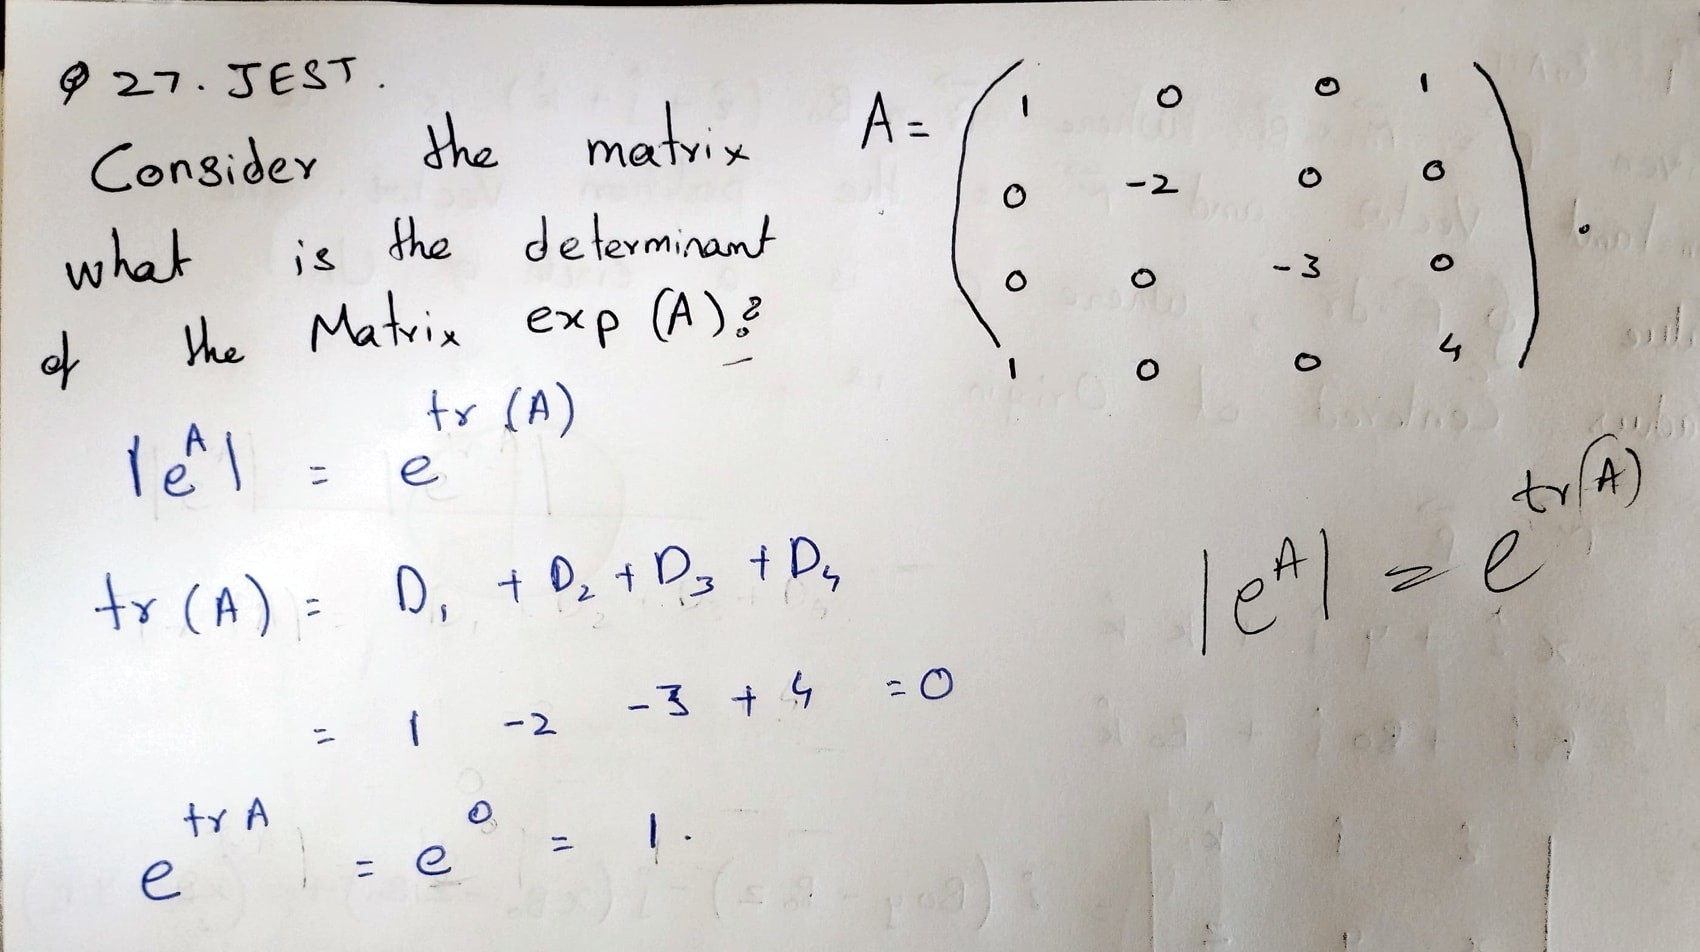 Q 27. JEST.
Consider the matrix A =
1 0 0 1
0 -2 0 0
0 0 -3 0
1 0 0 4
.
what is the determinant
of the Matrix exp (A)?
|e^A| = e^tr (A)
|e^A| = e^tr(A)
tr (A) = D₁ + D₂ + D₃ + D₄
= 1 -2 -3 + 4 = 0
e^tr A = e^0 = 1.